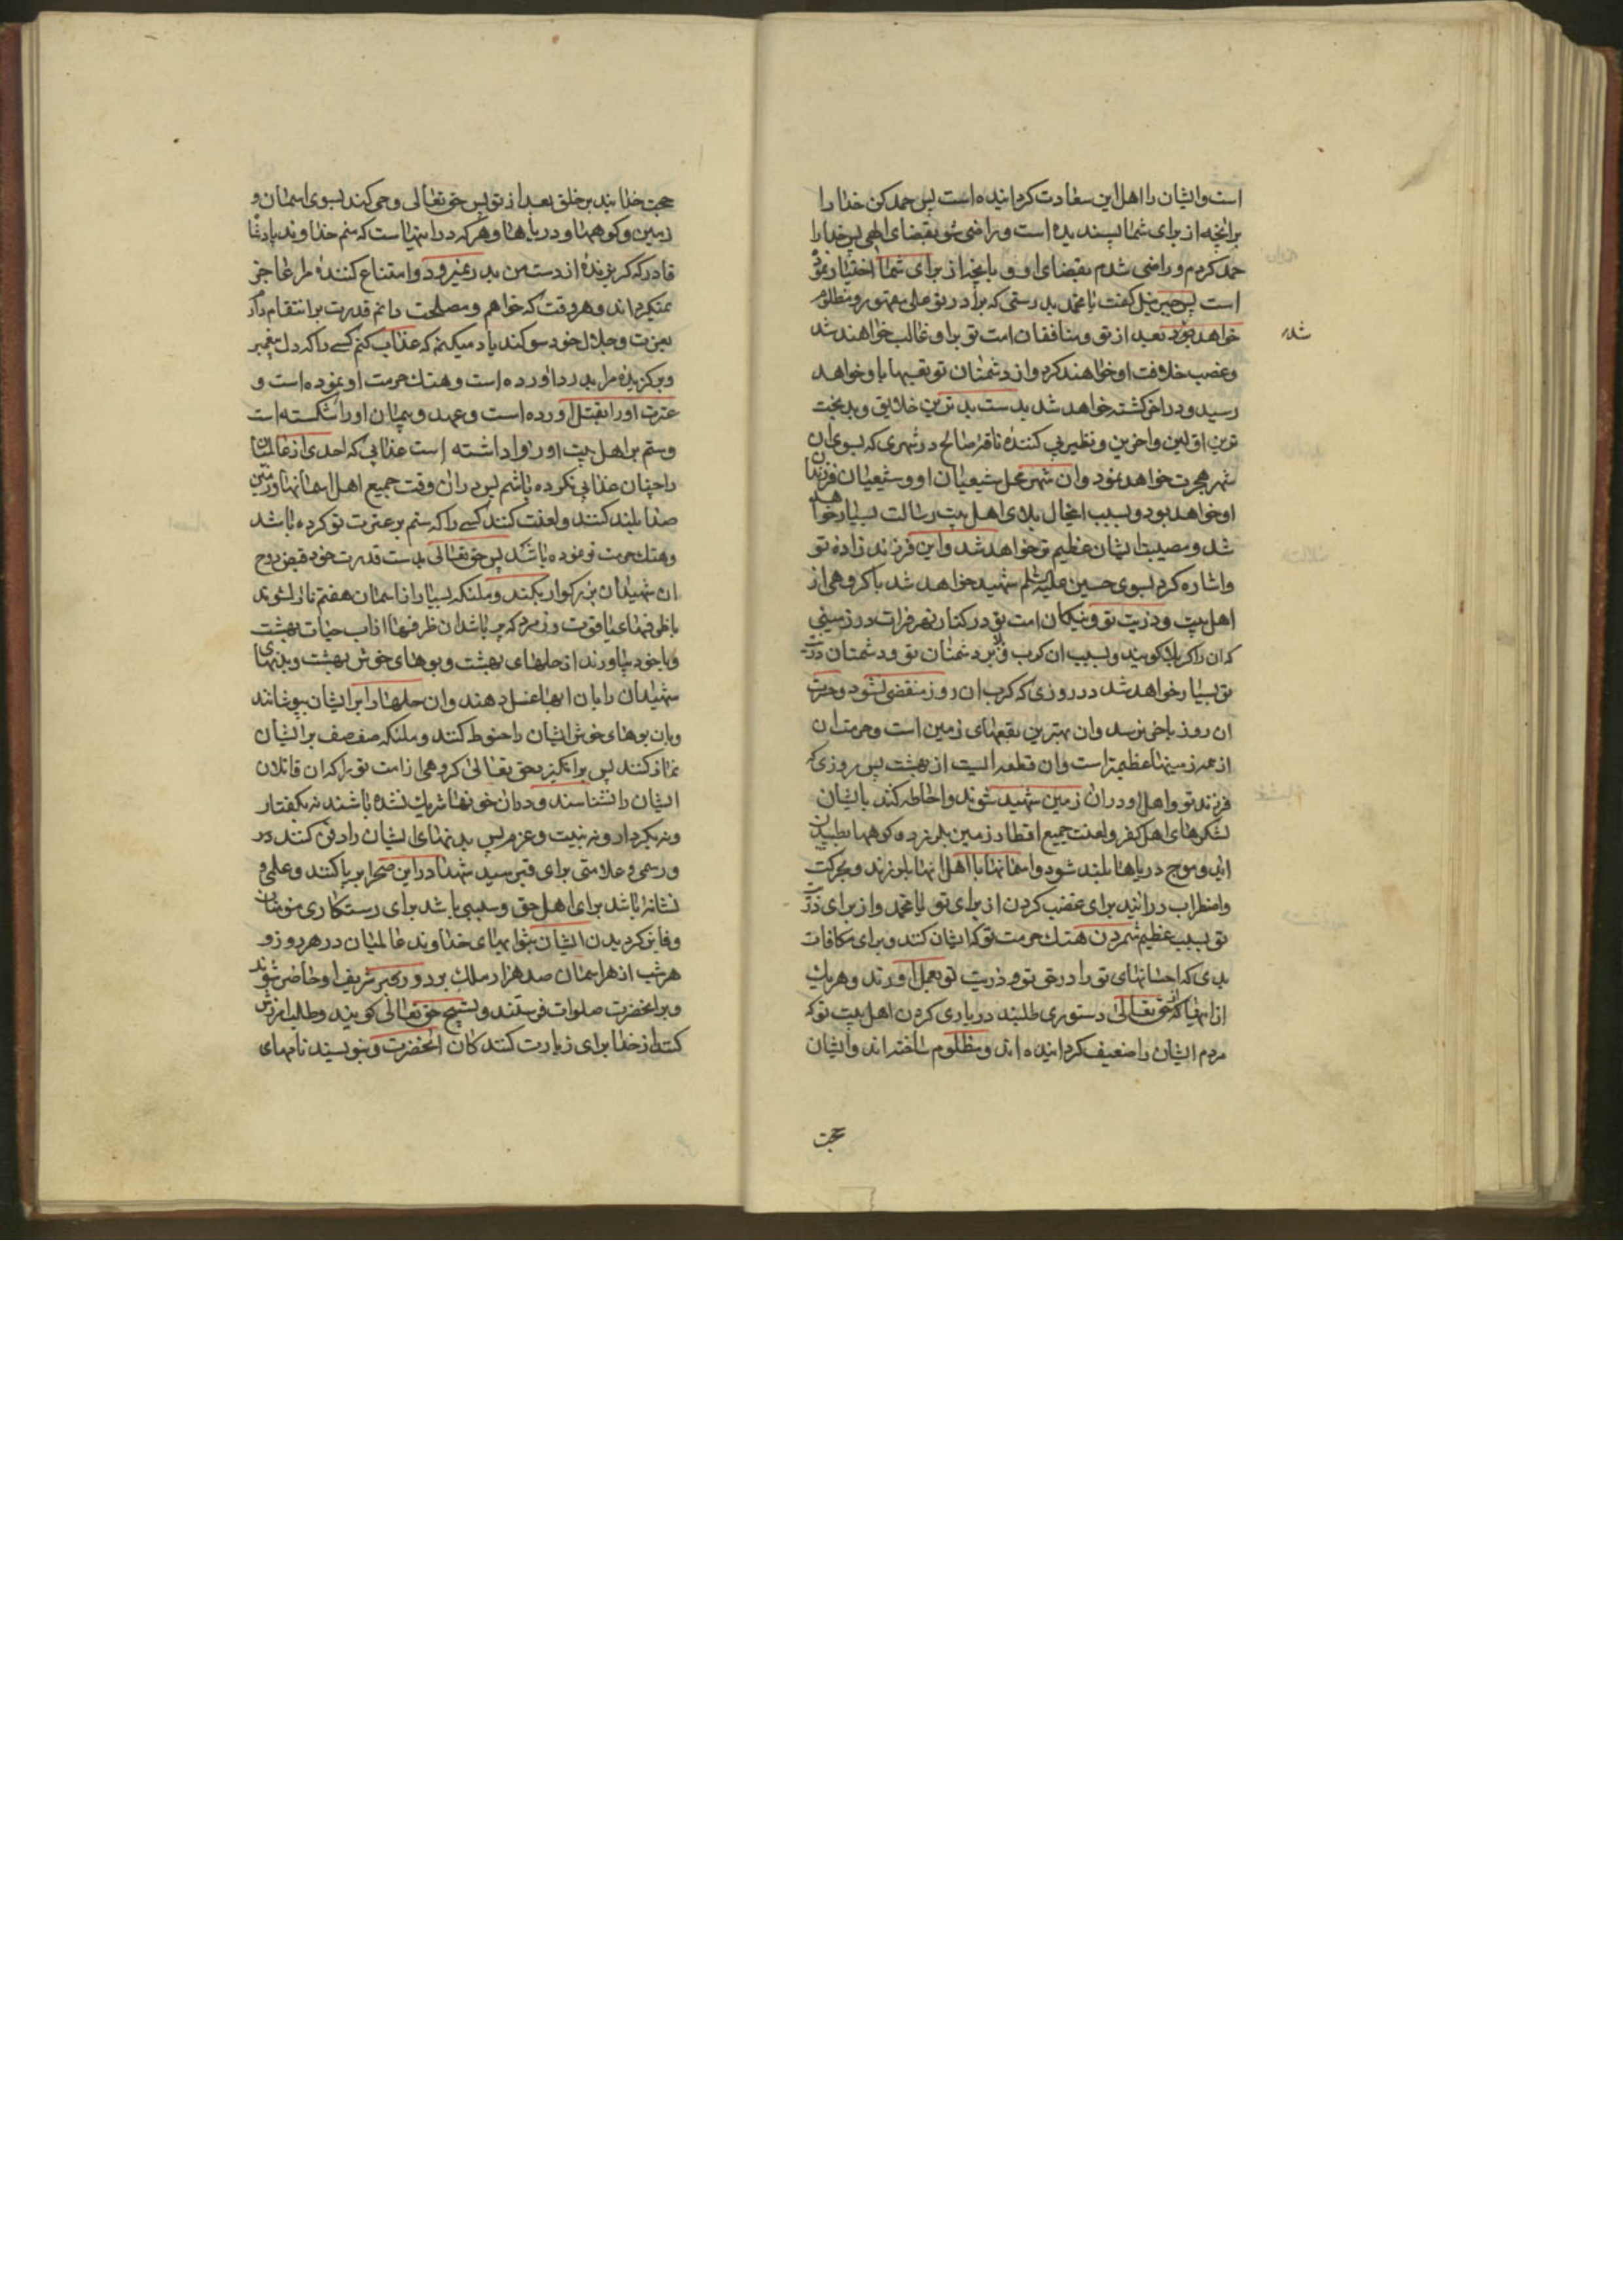 است و ایشان را اهل این سعادت کردانیده است پس حمد کن خدا را
برانچه از برای شما پسندیده است و راضی شو بقضای الهی پس خدا را
حمد کردم و راضی شدم بقضای او و بانچه از برای شما اختیار نموده
است پس جبرئیل کفت یا محمد بدرستی که برادر تو علی مقهور و مظلوم
خواهد بود بعد از تو و منافقان امت تو بر او غالب خواهند شد
شد
و غصب خلافت او خواهند کرد و از دشمنان تو تعبها باو خواهد
رسید و در اخر کشته خواهد شد بدست بدترین خلایق و بدبخت
ترین اولین و اخرین و نظیر پی کنندۀ ناقۀ صالح در شهری که بسوی ان
شهر هجرت خواهد نمود و ان شهر محل شیعیان او و شیعیان فرزندان
او خواهد بود و بسبب اینحال بلای اهل بیت رسالت بسیار خواهد
شد و مصیبت ایشان عظیم تر خواهد شد و این فرزند زادۀ تو
و اشاره کرد بسوی حسین علیه السلم شهید خواهد شد با کروهی از
اهل بیت و ذریت تو و نیکان امت تو در کنار نهر فرات در زمینی
که ان را کربلا کویند و بسبب ان کرب و بلا بر دشمنان تو و دشمنان ذریت
تو بسیار خواهد شد در روزی که کرب ان روز منقضی نشود و حسرت
ان روز باخر نرسد و ان بهترین بقعهای زمین است و حرمت ان
از همه زمینها عظیمتر است و ان قطعه ایست از بهشت پس روزی که
فرزند تو و اهل او در ان زمین شهید شوند و احاطه کند بایشان
لشکرهای اهل کفر و لعنت جمیع اقطار زمین بلرزد و کوهها بطپیدن
اید و موج دریاها بلند شود و اسمانها با اهل انها بلرزند و بحرکت
و اضطراب درایند برای غضب کردن از برای تو یا محمد و از برای ذریت
تو بسبب عظیم شمردن هتک حرمت تو که ایشان کنند و برای مکافات
بدی که احسانهای تو را در حق تو و ذریت تو بعمل اورند و هر یک
از انها که از حق تعالی دستوری طلبند در یاری کردن اهل بیت تو که
مردم ایشان را ضعیف کردانیده اند و مظلوم ساخته اند و ایشان
حجت
حجت خدایند بر خلق بعد از تو پس حق تعالی وحی کند بسوی اسمان و
زمین و کوهها و دریاها و هر که در انهاست که منم خداوند پادشاه
قادر که کریزندۀ از دست من بدر نمیرود و امتناع کنندۀ مرا عاجز
نمیکرداند و هر وقت که خواهم و مصلحت دانم قدرت بر انتقام دارم
بعزت و جلال خود سوکند یاد میکنم که عذاب کنم کسی را که دل پیغمبر
و برکزیدۀ مرا بدرد اورده است و هتک حرمت او نموده است و
عترت او را بقتل اورده است و عهد و پیمان او را شکسته است
و ستم بر اهل بیت او روا داشته است عذابی که احدی از عالمیان
را چنان عذابی نکرده باشم پس در ان وقت جمیع اهل اسمانها و زمین
صدا بلند کنند و لعنت کنند کسی را که ستم بر عترت تو کرده باشد
و هتک حرمت تو نموده باشد پس حق تعالی بدست قدرت خود قبض روح
ان شهیدان بزرکوار بکند و ملئکه بسیار از اسمان هفتم نازل شوند
با ظرفهای یاقوت و زمرد که پر باشد ان ظرفها از اب حیات بهشت
و با خود بیاورند از حلهای بهشت و بوهای خوش بهشت و بدنهای
شهیدان را بان ابها غسل دهند و ان حلها را بر ایشان بپوشانند
و بان بوهای خوش ایشان را حنوط کنند و ملئکه صف صف بر ایشان
نماز کنند پس برانکیزد حق تعالی کروهی از امت تو را که ان قاتلان
ایشان را نشناسند و در ان خونها شریک نشده باشند نه بکفتار
و نه بکردار و نه بنیت و عزم پس بدنهای ایشان را دفن کنند در
و رسمی و علامتی برای قبر سید شهدا در این صحرا برپا کنند و علمی و
نشانه باشد برای اهل حق و سببی باشد برای رستکاری مومنان
و فایز کردیدن ایشان بثوابهای خداوند عالمیان در هر روز و
هر شب از هر اسمان صد هزار ملک بر دور قبر شریف او حاضر شوند
و بر انحضرت صلوات فرستند و تسبیح حق تعالی کویند و طلب امرزش
کنند از خدا برای زیارت کنندکان انحضرت و بنویسند نامهای